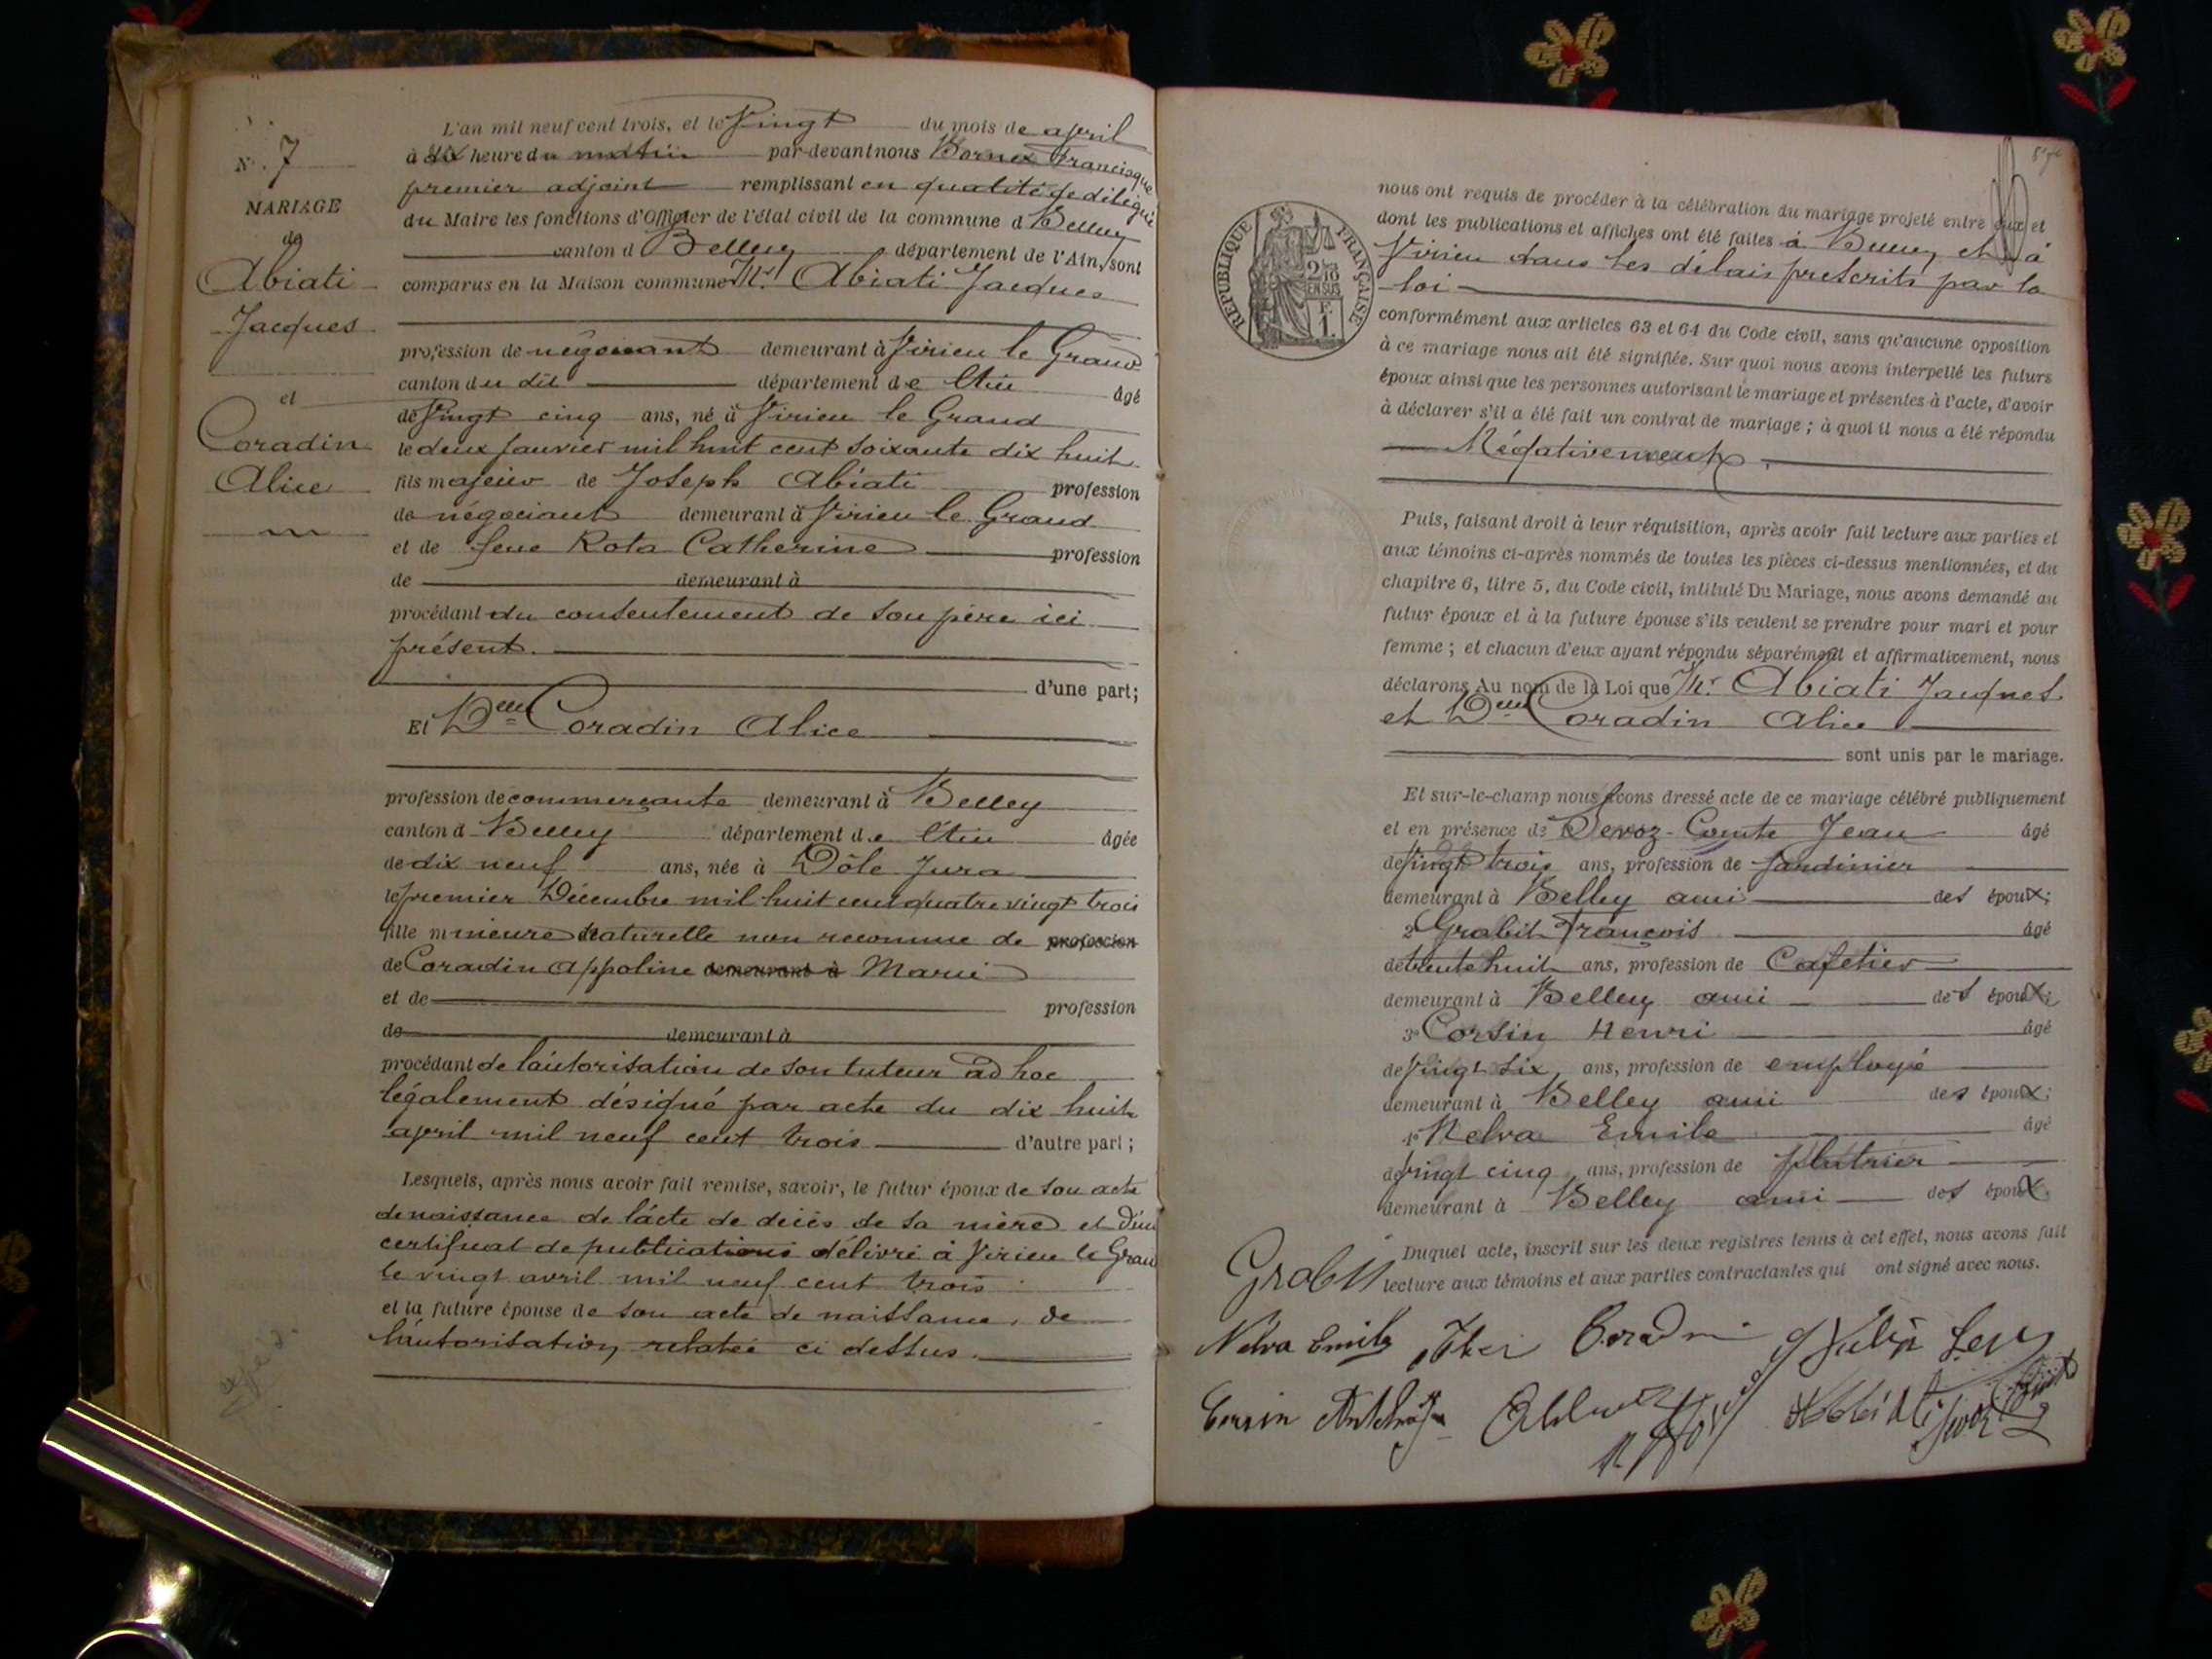 N°. 7
MARIAGE
de
Abiati
Jacques
et
Coradin
Alice
L'an mil neuf cent trois, et le Vingt du mois de april
à dix heure du matin par-devant nous Bornex Francisque
premier adjoint remplissant en qualité de délégué
du Maire les fonctions d'Officier de l'état civil de la commune d Belley
canton d Belley département de l'Ain, sont
comparus en la Maison commune Mr. Abiati Jacques
profession de négociant demeurant à Virieu le Grand
canton du dit département de l'Ain âgé
de Vingt cinq ans, né à Virieu le Grand
le deux Janvier mil huit cent soixante dix huit
fils majeur de Joseph Abiati profession
de négociant demeurant à Virieu le Grand
et de feue Rota Catherine profession
de demeurant à
procédant du consentement de son père ici
présent.
d'une part;
Et Delle Coradin Alice
profession de commerçante demeurant à Belley
canton d Belley département de l'Ain âgée
de dix neuf ans, née à Dôle Jura
le premier Décembre mil huit cent quatre vingt trois
fille mineure naturelle non reconnue de profession
de Coradin Appoline demeurant à Marie
et de profession
de demeurant à
procédant de l'autorisation de son tuteur ad hoc
légalement désigné par acte du dix huit
april mil neuf cent trois d'autre part;
Lesquels, après nous avoir fait remise, savoir, le futur époux de son acte
de naissance de l'acte de décès de sa mère et d'un
certificat de publications délivré à Virieu le Grand
le vingt avril mil neuf cent trois
et la future épouse de son acte de naissance, de
l'autorisation relatée ci dessus.
RÉPUBLIQUE FRANÇAISE
2/10
EN SUS
F.
1.
nous ont requis de procéder à la célébration du mariage projeté entre eux et
dont les publications et affiches ont été faites à Belley et à
Virieu dans les délais prescrits par la
loi
conformément aux articles 63 et 64 du Code civil, sans qu'aucune opposition
à ce mariage nous ait été signifiée. Sur quoi nous avons interpellé les futurs
époux ainsi que les personnes autorisant le mariage et présentes à l'acte, d'avoir
à déclarer s'il a été fait un contrat de mariage; à quoi il nous a été répondu
Négativement.
Puis, faisant droit à leur réquisition, après avoir fait lecture aux parties et
aux témoins ci-après nommés de toutes les pièces ci-dessus mentionnées, et du
chapitre 6, titre 5, du Code civil, intitulé Du Mariage, nous avons demandé au
futur époux et à la future épouse s'ils veulent se prendre pour mari et pour
femme; et chacun d'eux ayant répondu séparément et affirmativement, nous
déclarons Au nom de la Loi que Mr. Abiati Jacques
et Delle Coradin Alice
sont unis par le mariage.
Et sur-le-champ nous avons dressé acte de ce mariage célébré publiquement
et en présence de Devoz-Comte Jean âgé
de Vingt trois ans, profession de Jardinier
demeurant à Belley ami des époux;
2° Grabit François âgé
de trente huit ans, profession de Cafetier
demeurant à Belley ami des époux;
3° Corsin Henri âgé
de Vingt six ans, profession de employé
demeurant à Belley ami des époux;
4° Nelva Emile âgé
de Vingt cinq ans, profession de plâtrier
demeurant à Belley ami des époux.
Duquel acte, inscrit sur les deux registres tenus à cet effet, nous avons fait
lecture aux témoins et aux parties contractantes qui ont signé avec nous.
Grabit
Nelva Emile Coradin
Corsin